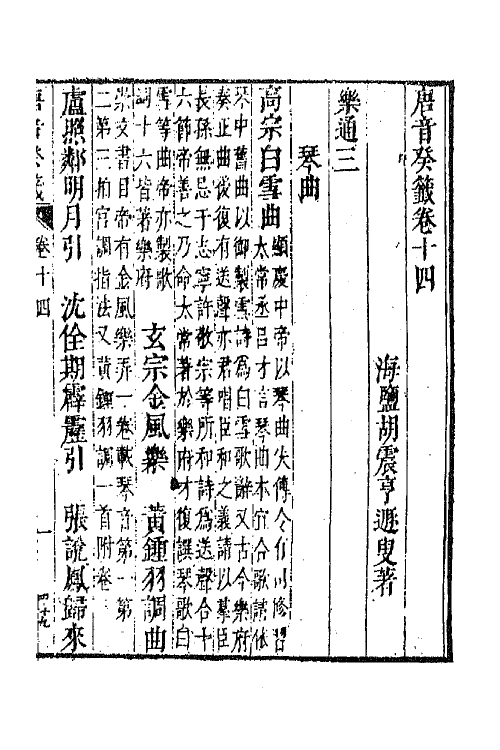 唐音癸籤卷十四
海鹽胡震亨遯叟著
樂通三
琴曲
高宗白雪曲
顯慶中帝以琴曲失傳令有司修習
太常丞呂才言琴曲本宜合歌請依
琴中舊曲以御製雪詩為白雪歌辭又古今樂府
奏正曲後復有送聲亦君唱臣和之義請以羣臣
長孫無忌于志寧許敬宗等所和詩為送聲合十
六節帝善之乃命太常著於樂府才復譔琴歌白
雪等曲帝亦製歌
詞十六皆著樂府
玄宗金風樂
黃鍾羽調曲
崇文書目帝有金風樂弄一卷載琴音第一第
二第三拍宫調指法又黃鍾羽調一首附卷
盧照鄰明月引
沈佺期霹靂引
張說鳳歸來
唐音癸籤
卷十四
一